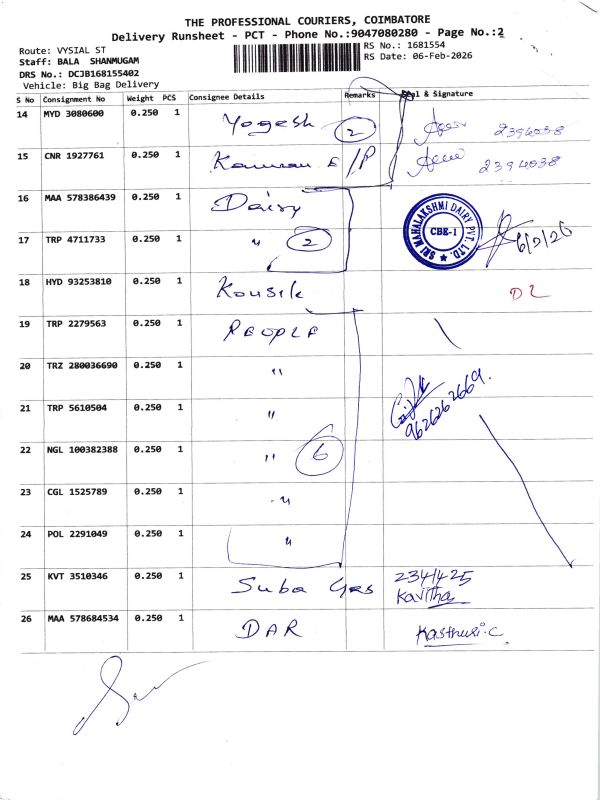 THE PROFESSIONAL COURIERS, COIMBATORE
Delivery Runsheet - PCT - Phone No.:9047080280 - Page No.:2
Route: VYSIAL ST
RS No.: 1681554
Staff: BALA SHANMUGAM
RS Date: 06-Feb-2026
DRS No.: DCJB168155402
Vehicle: Big Bag Delivery
S No Consignment No Weight PCS Consignee Details Remarks Seal & Signature
14 MYD 3080600 0.250 1 Yogesh 2 2394038
15 CNR 1927761 0.250 1 E/P 2394038
16 MAA 578386439 0.250 1 Daisy
SRI MAHALAKSHMI DAIRY PVT. LTD. CBE-1
17 TRP 4711733 0.250 1 " 2 6/2/26
18 HYD 93253810 0.250 1 Kousik DL
19 TRP 2279563 0.250 1 PEOPLE
20 TRZ 280036690 0.250 1 "
21 TRP 5610504 0.250 1 " 9626262669.
22 NGL 100382388 0.250 1 " 6
23 CGL 1525789 0.250 1 "
24 POL 2291049 0.250 1 "
25 KVT 3510346 0.250 1 Suba Gas 2341425
Kavitha
26 MAA 578684534 0.250 1 DAR Kasthuri.C